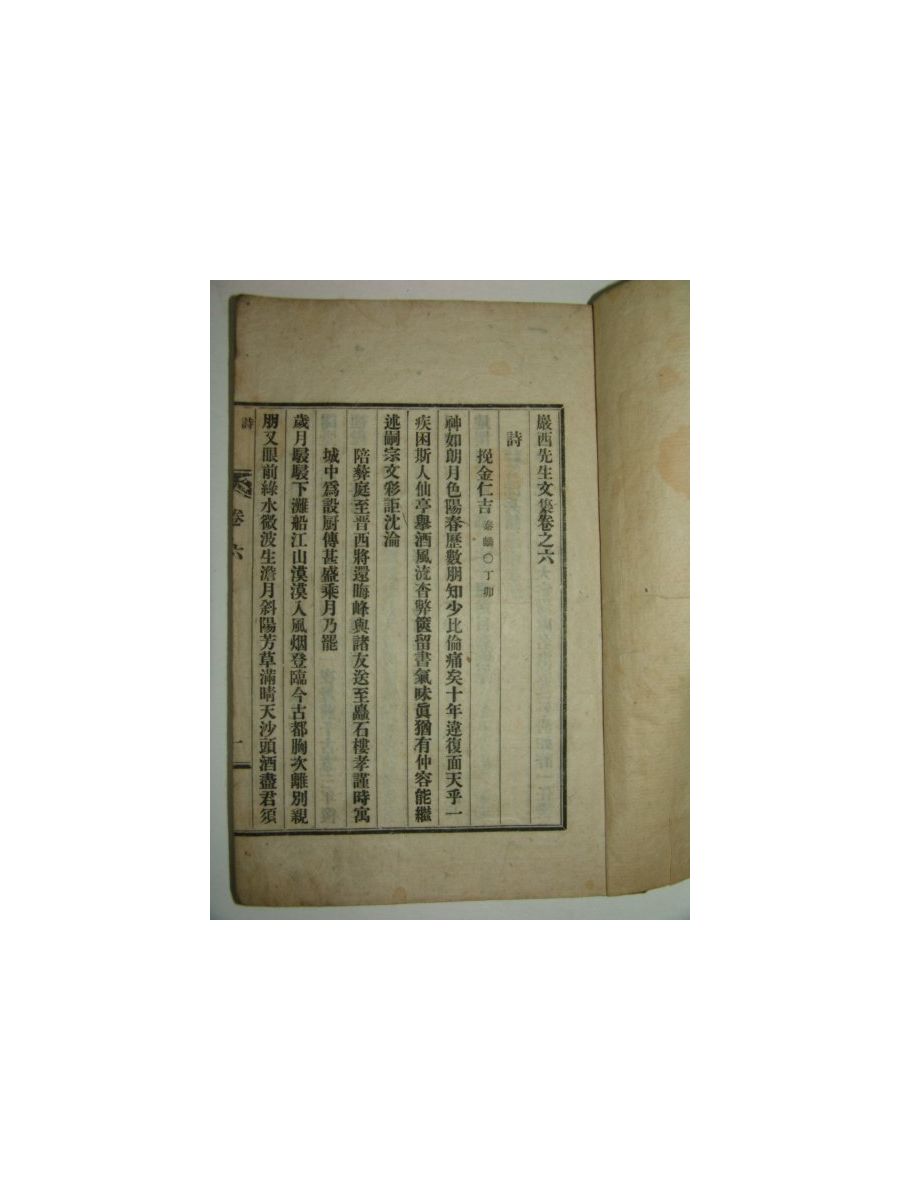 巖西先生文集卷之六
詩
挽金仁吉 泰麟○丁卯
神如朗月色陽春歷數朋知少比倫痛矣十年違復面天乎一
疾困斯人仙亭擧酒風流杳弊篋留書氣味眞猶有仲容能繼
述嗣宗文彩詎沈淪
陪彝庭至晋西將還晦峰與諸友送至矗石樓孝謹時寓
城中爲設厨傳甚盛乘月乃罷
歲月駸駸下灘船江山漠漠入風烟登臨今古都胸次離別親
朋又眼前綠水微波生澹月斜陽芳草滿晴天沙頭酒盡君須
詩 卷六 一